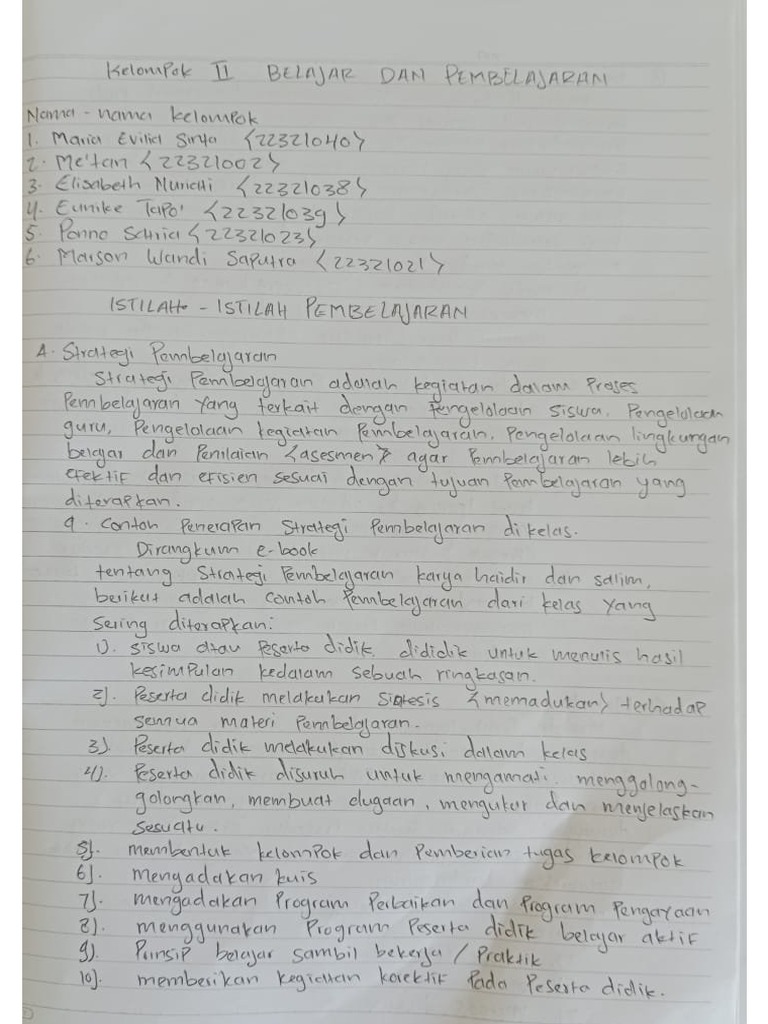 Kelompok II BELAJAR DAN PEMBELAJARAN
Nama - nama kelompok
1. Maria Evilia Sirya <22321040>
2. Me'tan <22321002>
3. Elisabeth Muriati <22321038>
4. Eunike Tapo' <22321039>
5. Ponno Satria <22321023>
6. Marson Wandi Saputra <22321021>
ISTILAH - ISTILAH PEMBELAJARAN
A. Strategi Pembelajaran
Strategi Pembelajaran adalah kegiatan dalam Proses
Pembelajaran yang terkait dengan Pengelolaan siswa, Pengelolaan
guru, Pengelolaan kegiatan Pembelajaran, Pengelolaan lingkungan
belajar dan Penilaian <asesmen> agar Pembelajaran lebih
efektif dan efisien sesuai dengan tujuan Pembelajaran yang
diterapkan.
a. Contoh Penerapan Strategi Pembelajaran di kelas.
Dirangkum e-book
tentang Strategi Pembelajaran karya haidir dan salim,
berikut adalah contoh Pembelajaran dari kelas yang
sering diterapkan:
1). siswa atau Peserta didik, dididik untuk menulis hasil
kesimpulan kedalam sebuah ringkasan.
2). Peserta didik melakukan Sintesis <memadukan> terhadap
semua materi Pembelajaran.
3). Peserta didik melakukan diskusi dalam kelas
4). Peserta didik disuruh untuk mengamati, menggolong-
golongkan, membuat dugaan, mengukur dan menjelaskan
sesuatu.
5). membentuk kelompok dan Pemberian tugas kelompok
6). mengadakan kuis
7). mengadakan Program Perbaikan dan Program Pengayaan
8). menggunakan Program Peserta didik belajar aktif
9). Prinsip belajar sambil bekerja / Praktik
10). memberikan kegiatan korektif Pada Peserta didik.